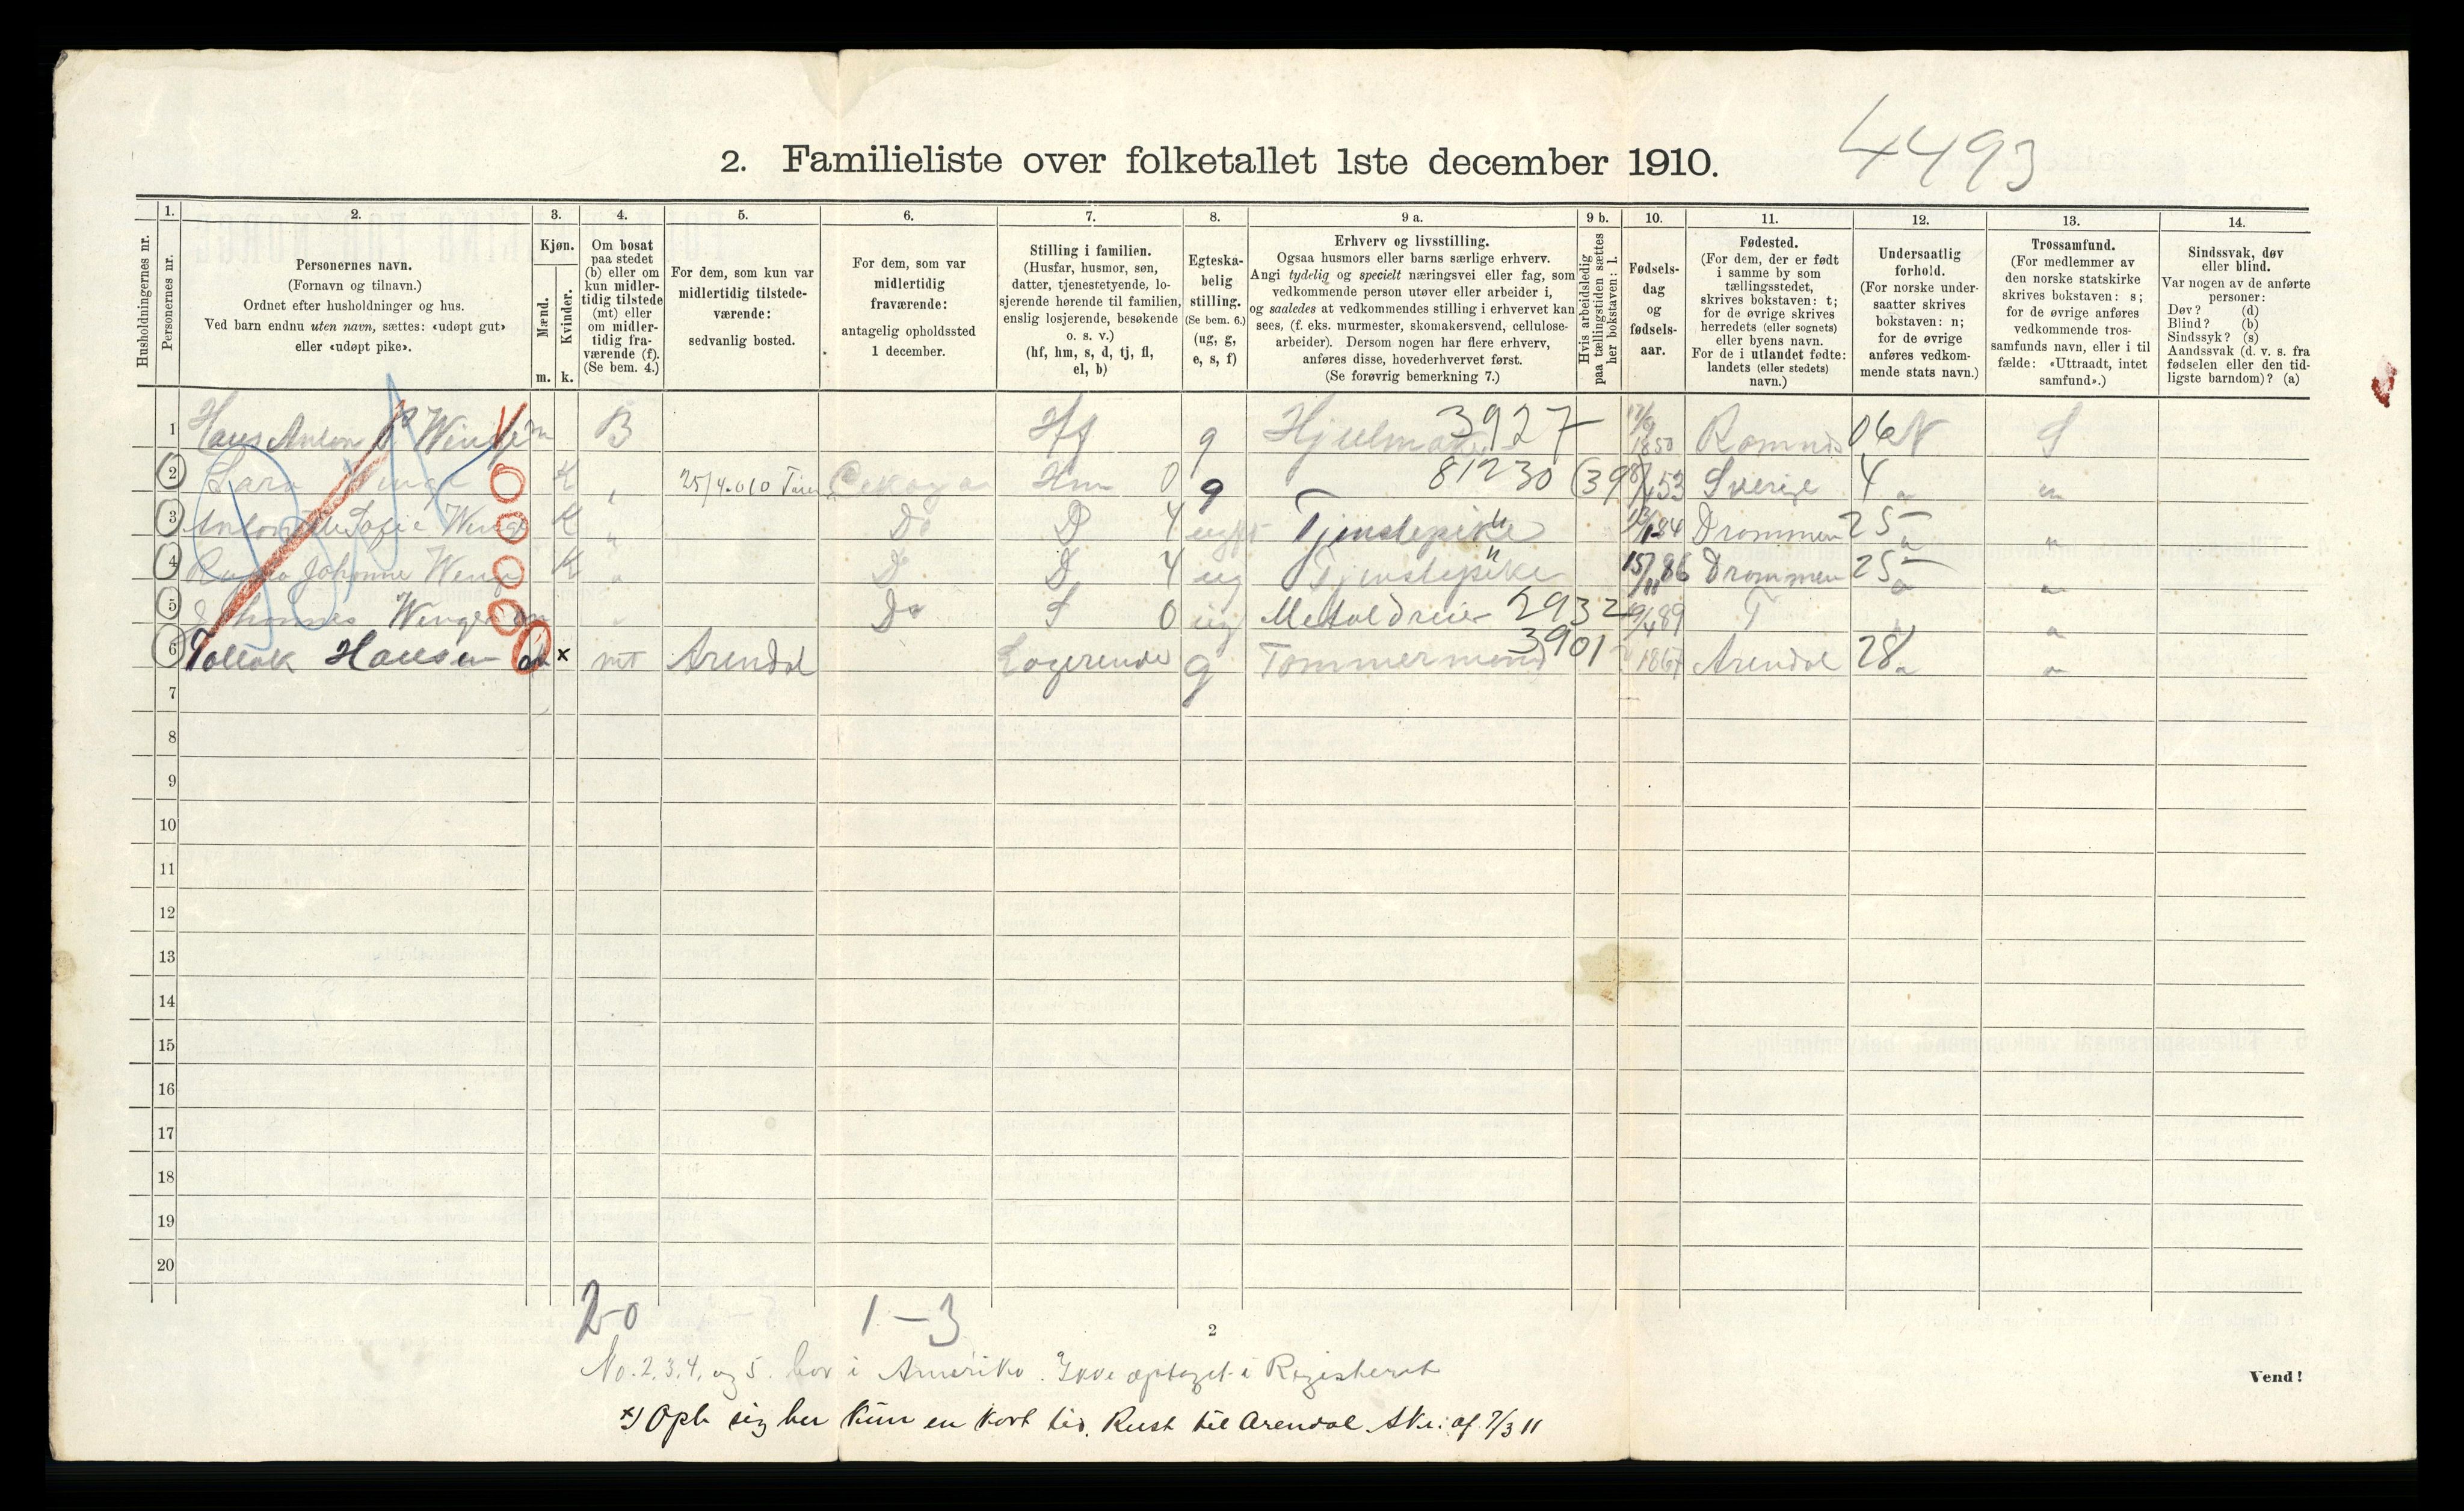 2. Familieliste over folketallet 1ste december 1910.
4493
Husholdningernes nr.
1.
Personernes nr.
2.
Personernes navn.
(Fornavn og tilnavn.)
Ordnet efter husholdninger og hus.
Ved barn endnu uten navn, sættes: «udøpt gut»
eller «udøpt pike».
3.
Kjøn.
Mænd.
Kvinder.
m. k.
4.
Om bosat
paa stedet
(b) eller om
kun midler-
tidig tilstede
(mt) eller
om midler-
tidig fra-
værende (f).
(Se bem. 4.)
5.
For dem, som kun var
midlertidig tilstede-
værende:
sedvanlig bosted.
6.
For dem, som var
midlertidig
fraværende:
antagelig opholdssted
1 december.
7.
Stilling i familien.
(Husfar, husmor, søn,
datter, tjenestetyende, lo-
sjerende hørende til familien,
enslig losjerende, besøkende
o. s. v.)
(hf, hm, s, d, tj, fl,
el, b)
8.
Egteska-
belig
stilling.
(Se bem. 6.)
(ug, g,
e, s, f)
9 a.
Erhverv og livsstilling.
Ogsaa husmors eller barns særlige erhverv.
Angi tydelig og specielt næringsvei eller fag, som
vedkommende person utøver eller arbeider i,
og saaledes at vedkommendes stilling i erhvervet kan
sees, (f. eks. murmester, skomakersvend, cellulose-
arbeider). Dersom nogen har flere erhverv,
anføres disse, hovederhvervet først.
(Se forøvrig bemerkning 7.)
9 b.
Hvis arbeidsledig
paa tællingstiden sættes
her bokstaven: l.
10.
Fødsels-
dag
og
fødsels-
aar.
11.
Fødested.
(For dem, der er født
i samme by som
tællingsstedet,
skrives bokstaven: t;
for de øvrige skrives
herredets (eller sognets)
eller byens navn.
For de i utlandet fødte:
landets (eller stedets)
navn.)
12.
Undersaatlig
forhold.
(For norske under-
saatter skrives
bokstaven: n;
for de øvrige
anføres vedkom-
mende stats navn.)
13.
Trossamfund.
(For medlemmer av
den norske statskirke
skrives bokstaven: s;
for de øvrige anføres
vedkommende tros-
samfunds navn, eller i til
fælde: «Uttraadt, intet
samfund».)
14.
Sindssvak, døv
eller blind.
Var nogen av de anførte
personer:
Døv? (d)
Blind? (b)
Sindssyk? (s)
Aandssvak (d. v. s. fra
fødselen eller den tid-
ligste barndom)? (a)
1 Hans Anton Winge m B Hf g 3927 1850 06 N S
2 Winge K " 25/4-010 Hm 0 g 81230 (39 53 Sverige 4 "
3 Winge K " Do D 4 Tjenstepike 84 Drammen 25 " "
4 Johanne K " Do D 4 ug Tjenstepike 15/11 86 Drammen 25 " "
5 Winge " Do S 0 ug Metaldreier 2932 89 T " "
6 Hansen x mt Arendal Logerende g Tømmermand 3901 1867 Arendal 28 " "
7
8
9
10
11
12
13
14
15
16
17
18
19
20
2-0 1-3
2
No. 2, 3, 4, og 5. bor i Amerika. Ikke optaget i Registeret
Vend!
x) Oph sig her kun en kort tid. Reist til Arendal 7/3 11